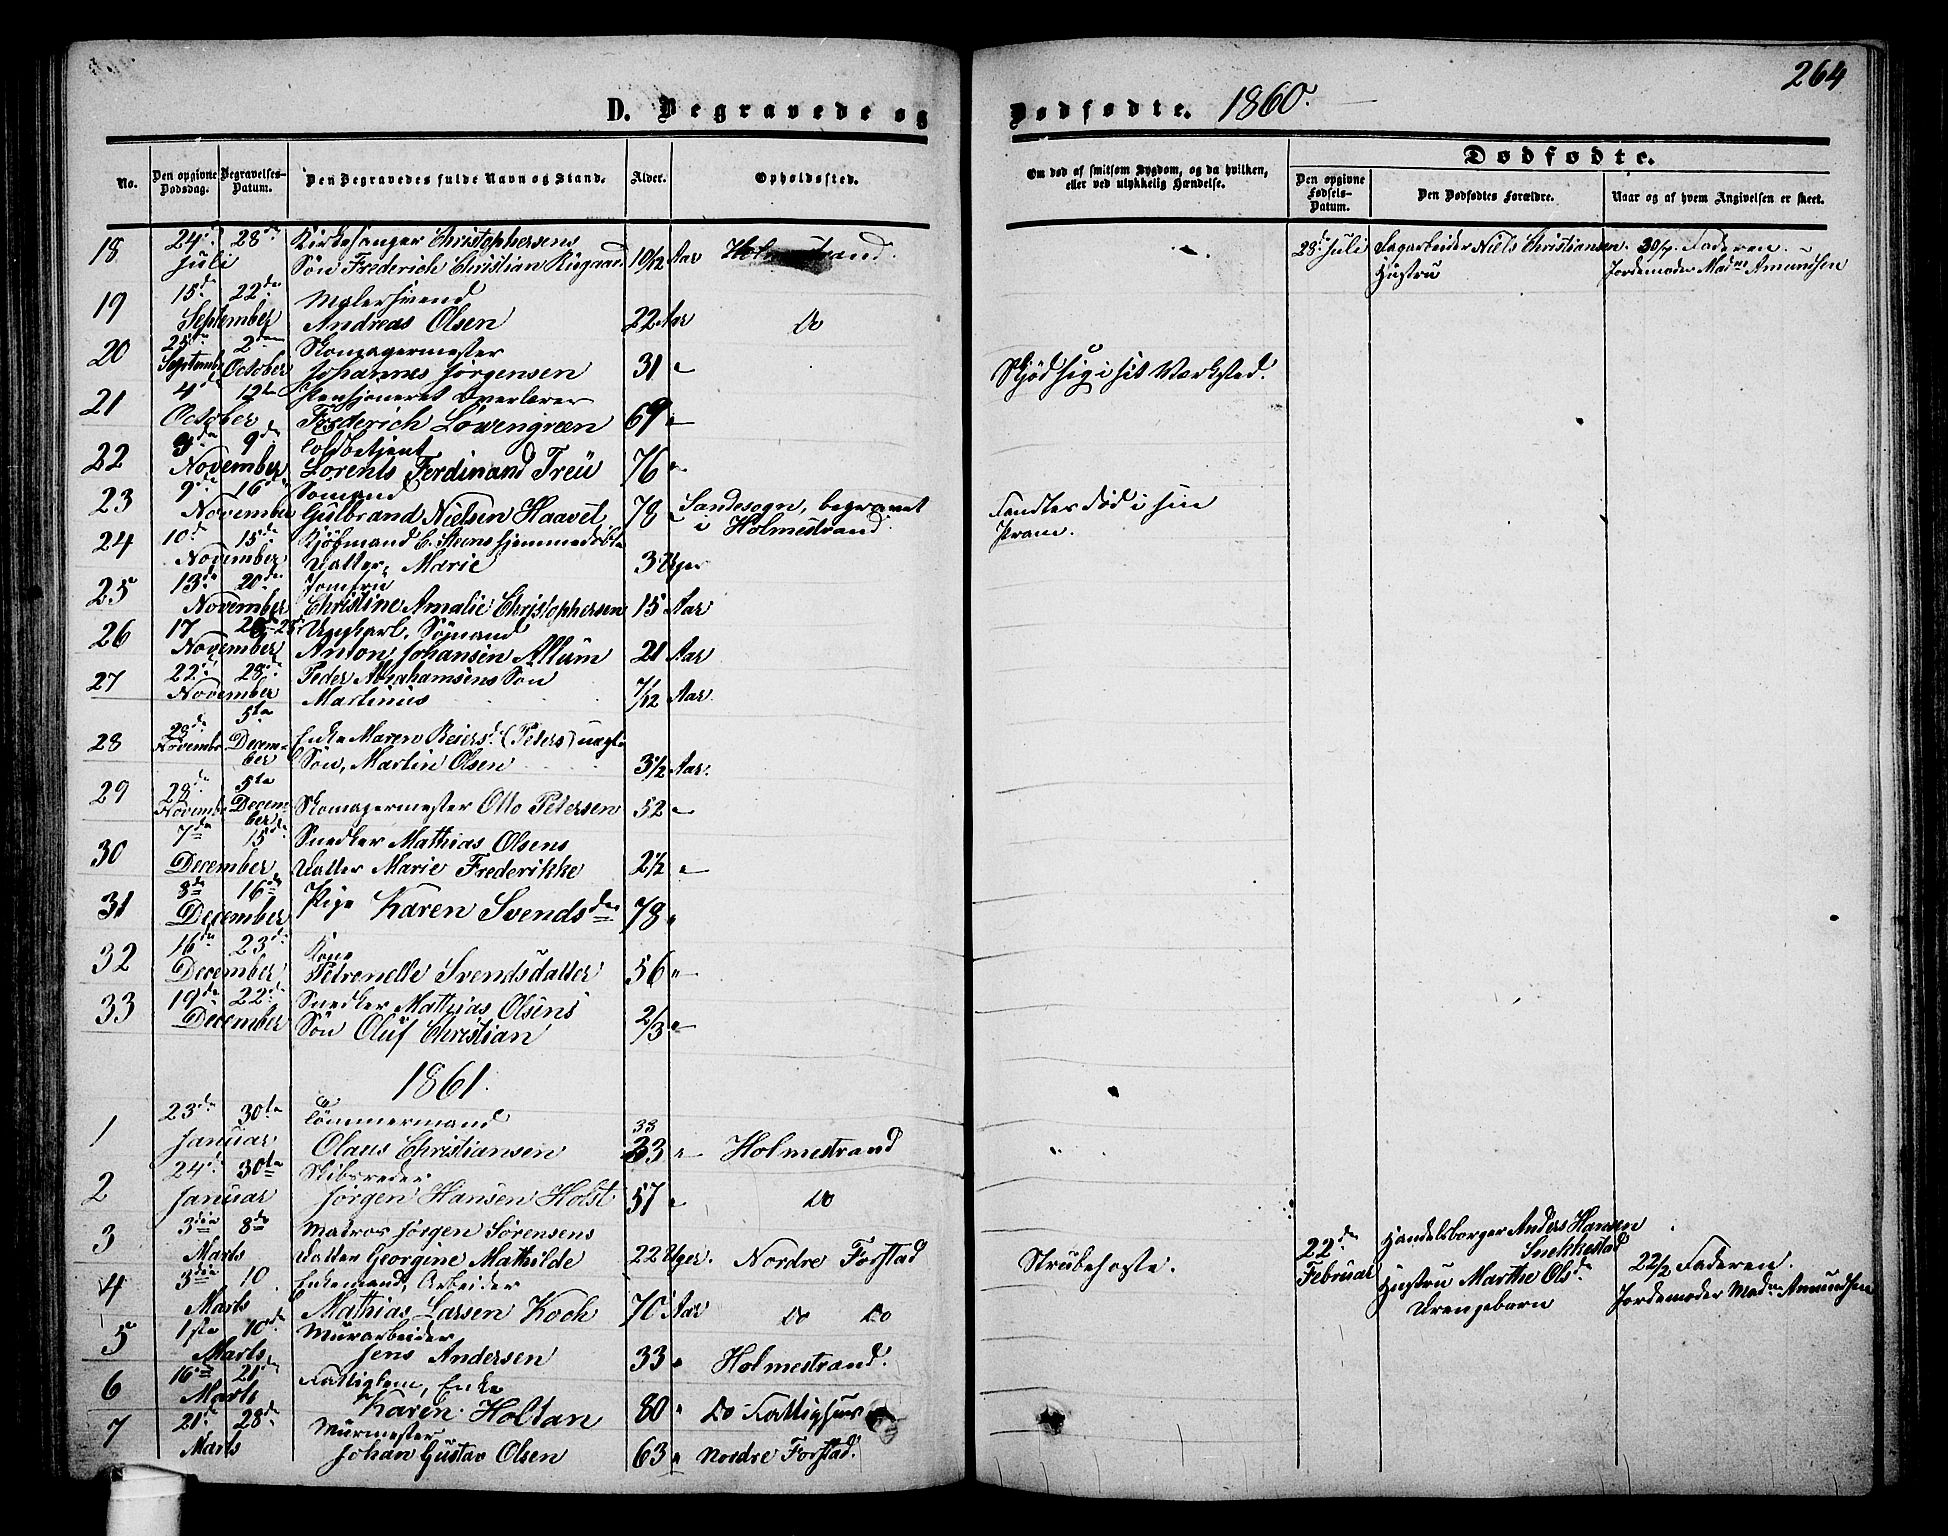 264
D. Begravede og Dødfødte. 1860.
Dødfødte.
No.
Den opgivne Dødsdag.
Begravelses-Datum.
Den Begravedes fulde Navn og Stand.
Alder.
Opholdssted.
Om død af smitsom Sygdom, og da hvilken, eller ved ulykkelig Hændelse.
Den opgivne Fødsels-Datum.
Den Dødfødtes Forældre.
Naar og af hvem Angivelsen er skeet.
18 24de 28de Kirkesanger Christophersens
Juli Søn Frederich Christian Rugaard 10/12 Aar Holmestrand.
28de Juli Sagarbeider Niels Christiansen 30/7. Faderen.
Hustru Jordemoder Madme Amundsen
19 15de 22de Malersvend
September Andreas Olsen 22 Aar Do
20 25de 2den Skomagermester
September October Johannes Jørgensen 31 " Skjød sig i sit Værksted.
21 4de 12te Pensioneret Overlærer
October Frederich Löwengreen 69 "
22 3die 9de Toldbetjent
November Lorents Ferdinand Treu 76 "
23 9de 16de Sømand
November Gulbrand Nielsen Haavel. 78 " Sandesogn, begravet
i Holmestrand.
Fandtes død i sin
Pram.
24 10de 15de Kjøbmand C. Steens hjemmedøbte
November Datter, Marie 3 Uger
25 13de 20de Jomfru
November Christine Amalie Christophersen 15 Aar
26 17 25 Ungkarl, Sømand
November Anton Johansen Allum 21 Aar
27 22de 28de Peder Abrahamsens Søn
November Martinius 7/12 Aar
28 28de 5te
November December Enke Maren Reiersd. (Peders) uægte
Søn, Martin Olsen 3 1/2 Aar.
29 28de 5te
November December Skomagermester Otto Petersen 52 "
30 7de 15de Snedker Mathias Olsens
December Datter Marie Frederikke 2 1/2 "
31 8de 16de
December Pige Karen Svendsda 78 "
32 16de 23de Kone
December Petronelle Svendsdatter 56 "
33 19de 22de Snedker Mathias Olsens
December Søn Oluf Christian 2/3 "
1861.
1 23de 30te Tømmermand 33
Januar Olaus Christiansen 33 " Holmestrand
2 24de 30te Skibsreder
Januar Jørgen Hansen Holst 57 " Do
3 3die 8de Matros Jørgen Sørensens
Marts Datter Georgine Mathilde 22 Uger. Nordre Forstad Strubehoste.
22de Februar Handelsborger Anders Hansen
Snekkestad
Hustru Marthe Olsda
Drengebarn
22/2 Faderen.
Jordemoder Mad. Amundsen
4 3die 10 Enkemand, Arbeider
Marts Mathias Larsen Koch 70 Aar Do Do
5 1ste 10de Murarbeider
Marts Jens Andersen 33 " Holmestrand.
6 16de 21de Fattiglem, Enke
Marts Karen Holtan 80 " Do Fattighus
7 21de 28de Murmester
Marts Johan Gustav Olsen 63 " Nordre Forstad.